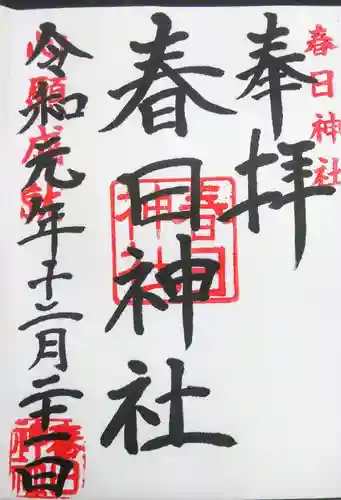 春日神社
奉拝
春日神社
春日神社
令和元年十二月二十一日